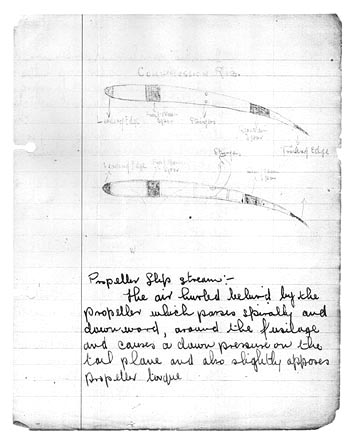 Compression Rib.
Leading Edge
Stringers
Trailing Edge
Stringers
Leading Edge
Propeller Slip stream:-
The air hurled behind by the
propeller which passes spirally and
downward, around the fusilage
and causes a down pressure on the
tail plane and also slightly opposes
propeller torque